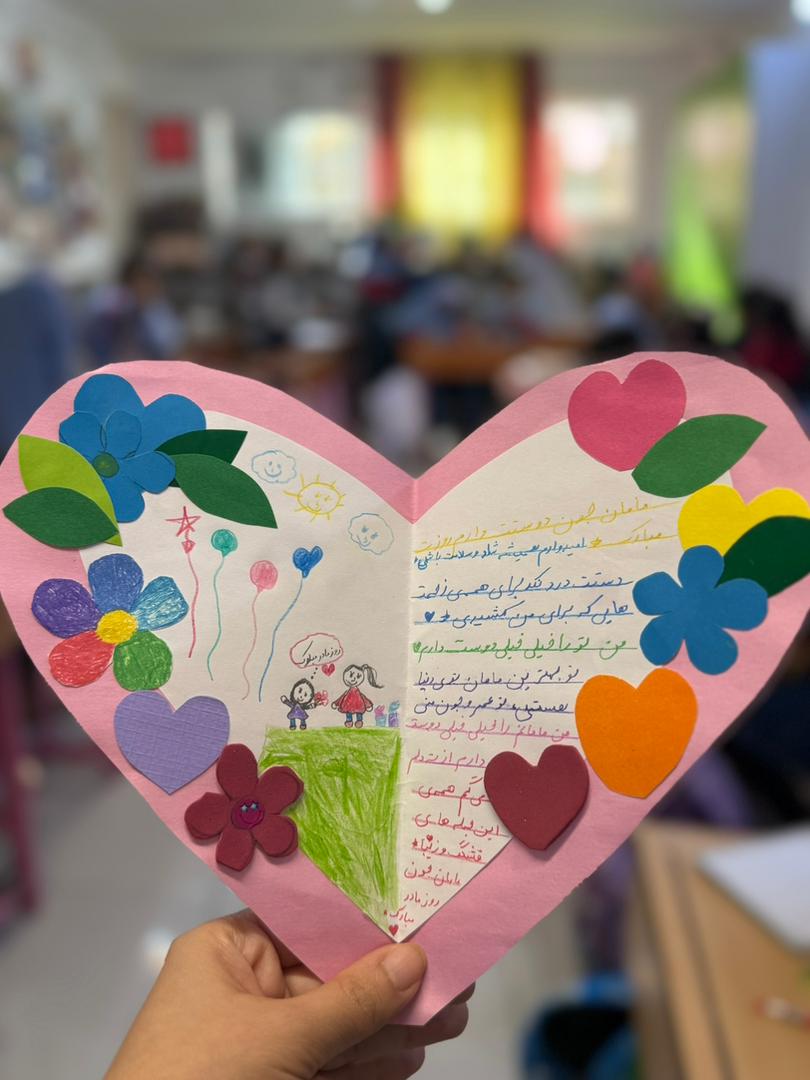 روز مادر مبارک
مامان جون دوستت دارم روزت
مبارک امیدوارم همیشه شاد و سلامت باشی
دستت درد نکند برای همه‌ی زحمت
هایی که برای من کشیدی
من تو را خیلی خیلی دوست دارم
تو بهترین مامان توی دنیا
هستی، تو عمر و جون منی
من مامانم را خیلی خیلی دوست
دارم از ته دلم
می گم همه‌ی
این جمله های
قشنگ و زیبا
مامان جون
روز مادر
مبارک